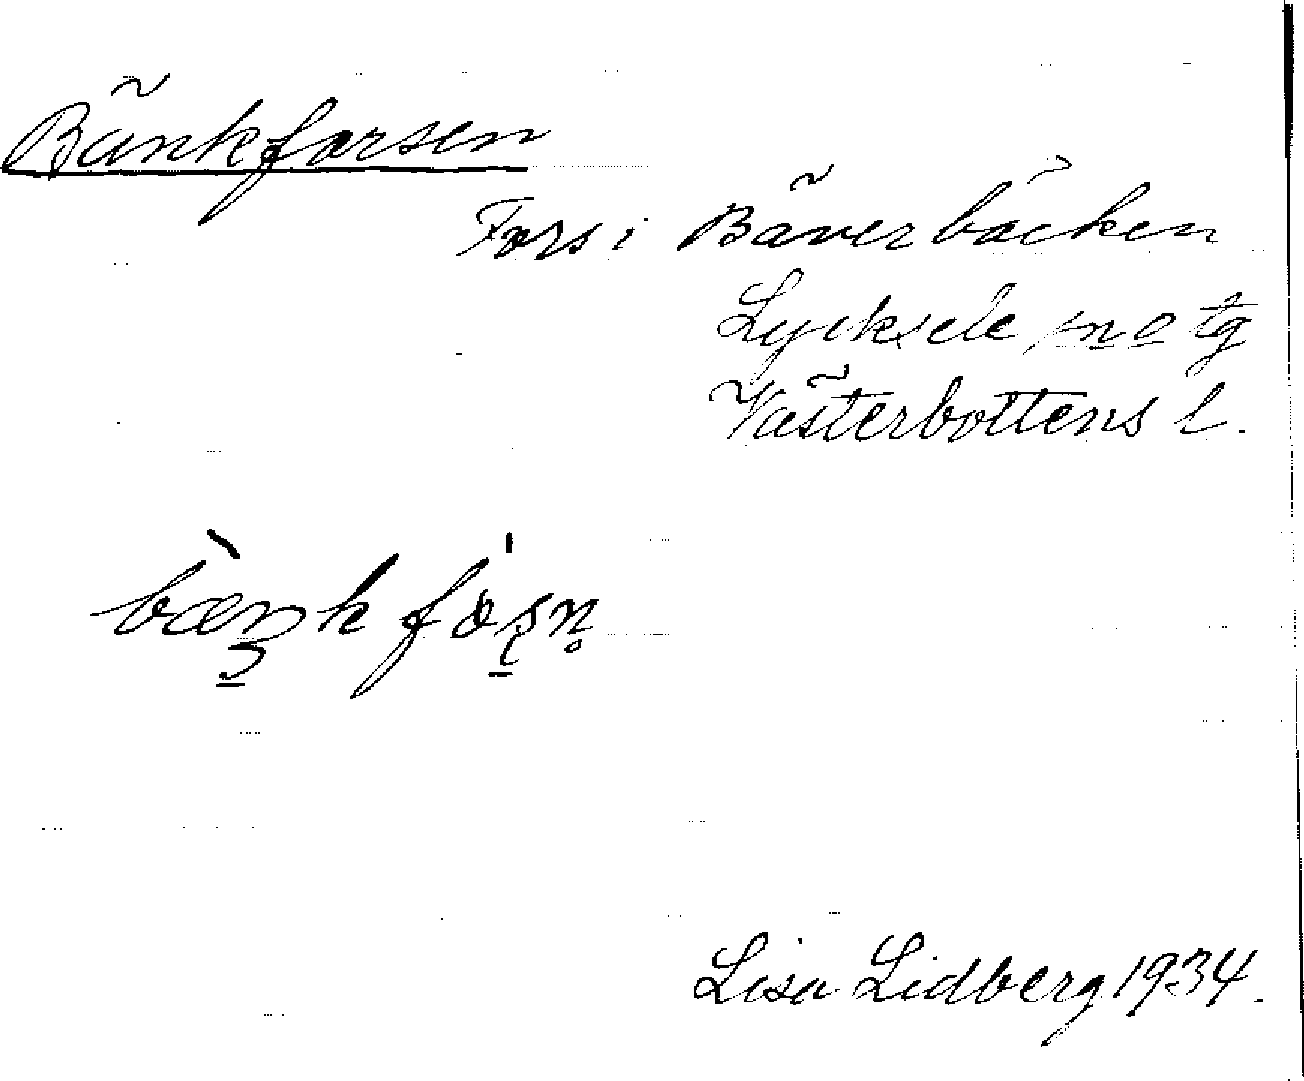 Bänkforsen
Fors i Bäverbäcken
Lycksele sn o tg
Västerbottens l.
bæŋkfɔʂn̥
Lisa Lidberg 1934.